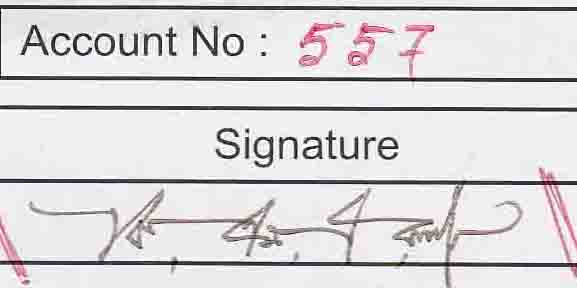 Account No : 557
Signature